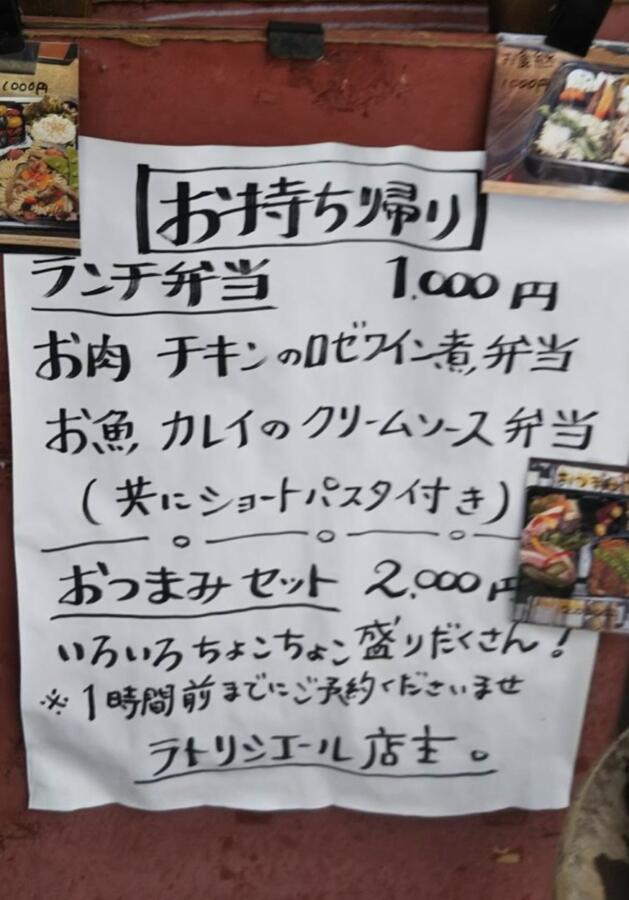 1000円
1000円
お持ち帰り
ランチ弁当 1,000円
お肉 チキンのロゼワイン煮弁当
お魚 カレイのクリームソース弁当
(共にショートパスタイ付き)
おつまみセット 2,000円
いろいろちょこちょこ盛りだくさん!
※1時間前までにご予約くださいませ
ラトリシエール店主。